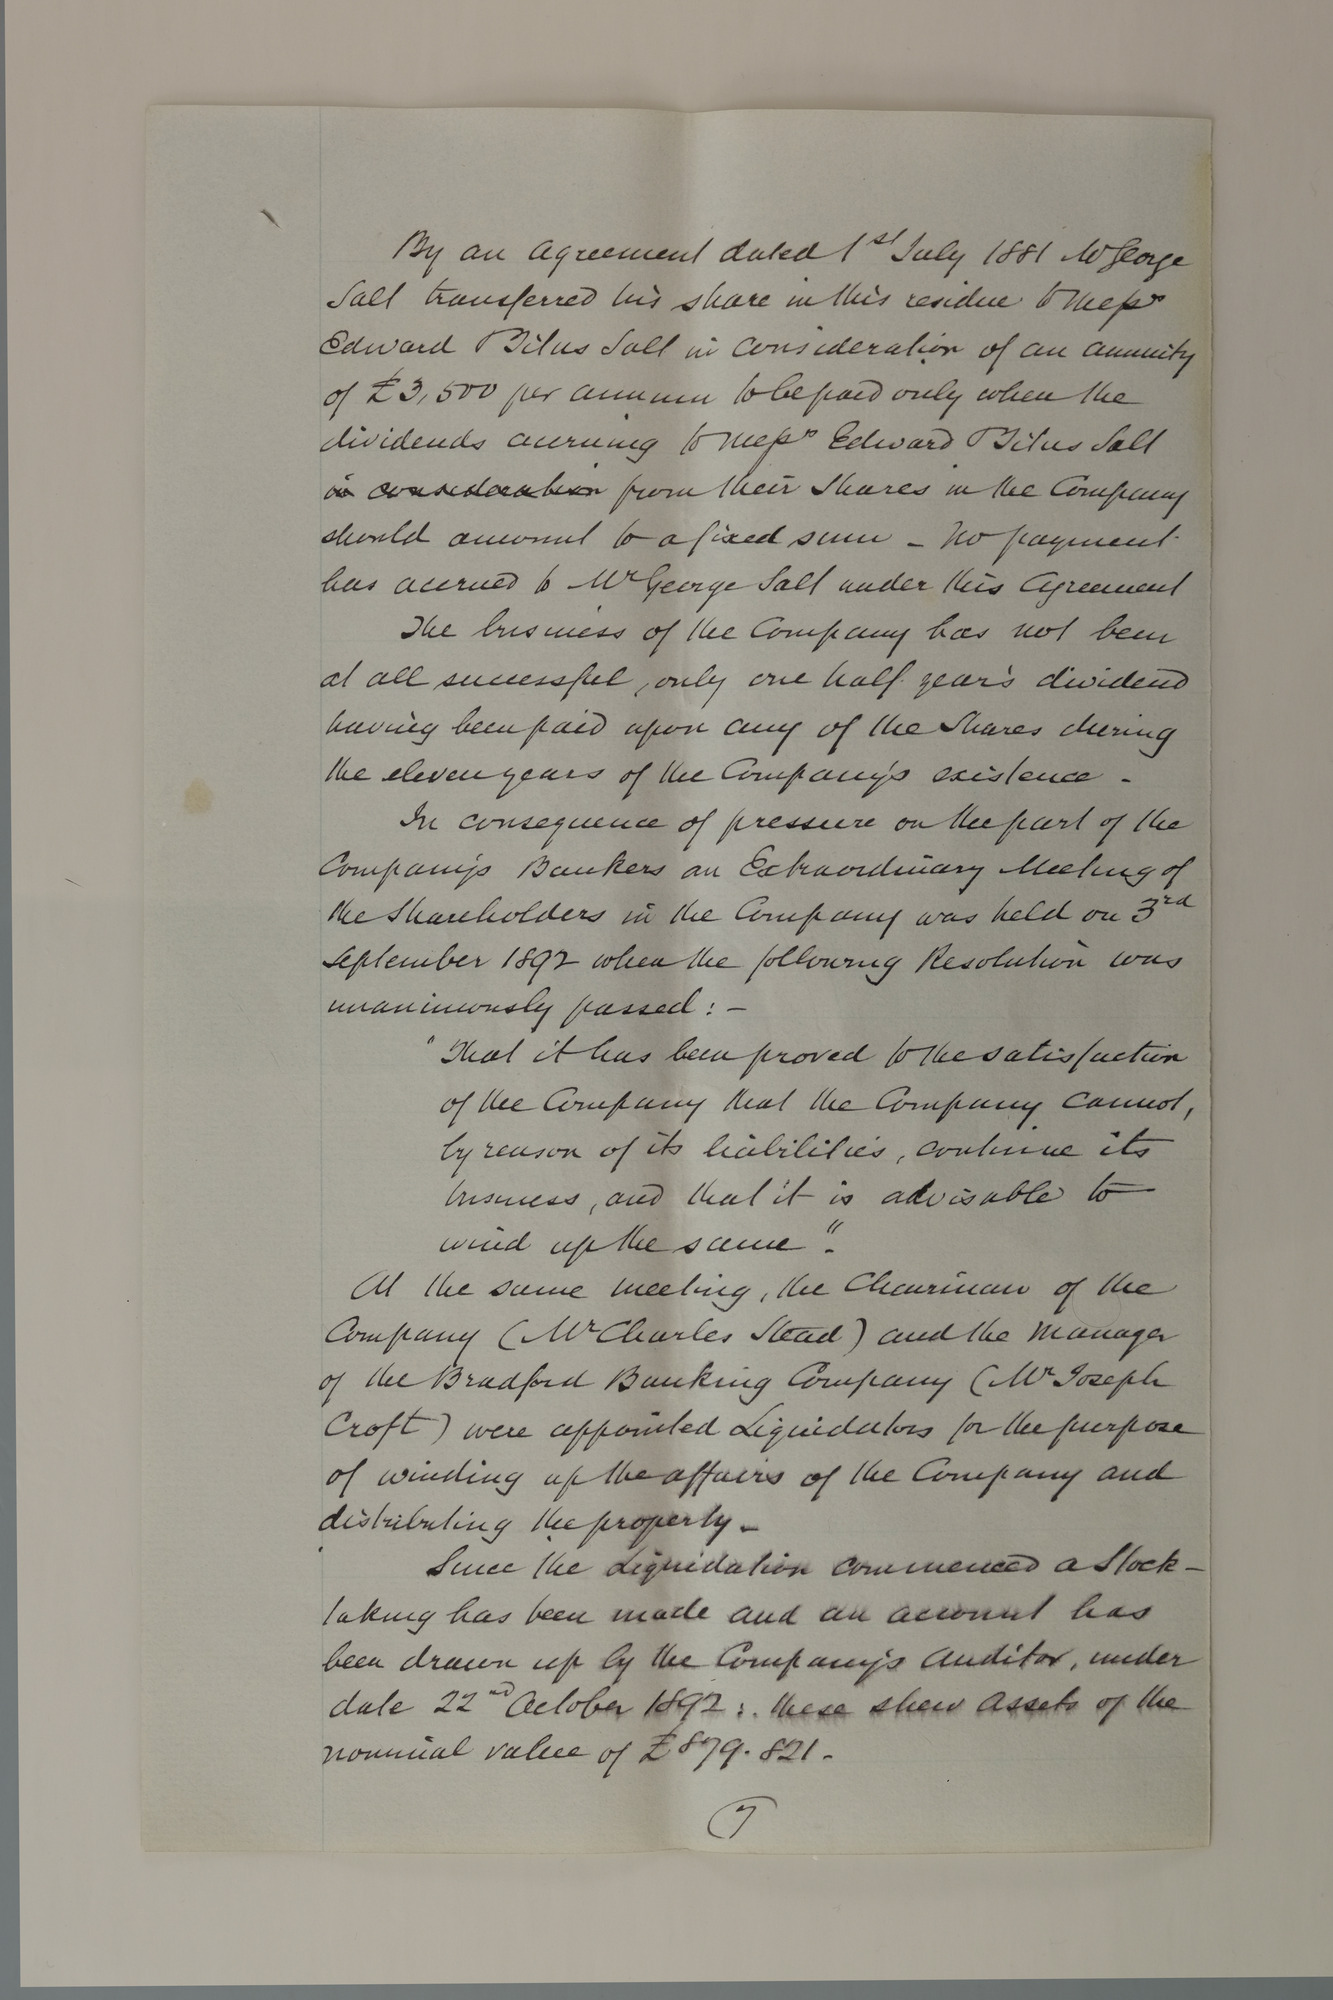 By an Agreement dated 1st July 1881 Mr George
Salt transferred his share in this residue to Messrs
Edward & Titus Salt in consideration of an annuity
of £3,500 per annum to be paid only when the
dividends accruing to Messrs Edward & Titus Salt
in consideration from their Shares in the Company
should amount to a fixed sum – No payment
has accrued to Mr George Salt under this Agreement
The business of the Company has not been
at all successful, only one half year's dividend
having been paid upon any of the Shares during
the eleven years of the Company's existence –
In consequence of pressure on the part of the
Company's Bankers an Extraordinary Meeting of
the Shareholders in the Company was held on 3rd
September 1892 when the following Resolution was
unanimously passed: –
"That it has been proved to the satisfaction
of the Company that the Company cannot,
by reason of its liabilities, continue its
business, and that it is advisable to
wind up the same".
At the same meeting, the Chairman of the
Company (Mr Charles Stead) and the Manager
of the Bradford Banking Company (Mr Joseph
Croft) were appointed Liquidators for the purpose
of winding up the affairs of the Company and
distributing the property –
Since the Liquidation commenced a Stock-
taking has been made and an account has
been drawn up by the Company's Auditor, under
date 22nd October 1892: these shew Assets of the
nominal value of £879.821 –
7